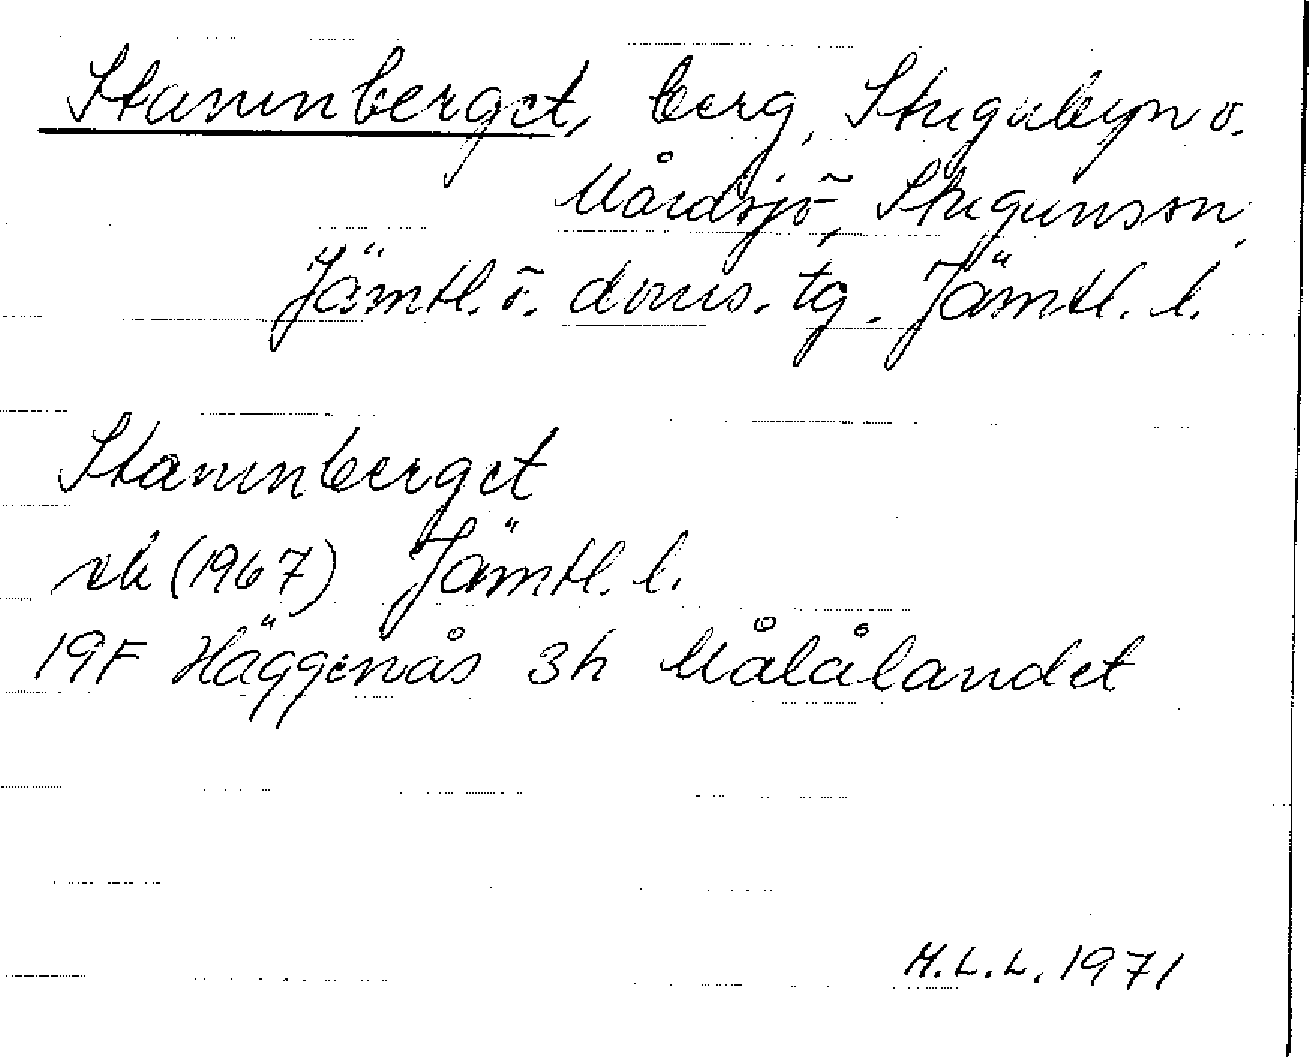 Stamnberget, berg, Stugubyn o.
Mårdsjö, Stuguns sn
Jämtl. ö. doms. tg. Jämtl. l.
Stamnberget
ek (1967) Jämtl. l.
19F Häggenås 3h Målålandet
M.L.L. 1971